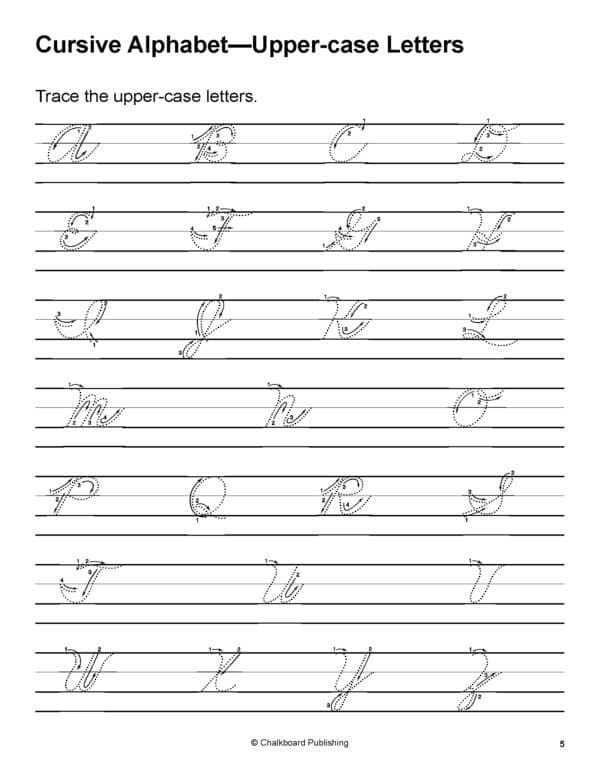 Cursive Alphabet—Upper-case Letters
Trace the upper-case letters.
A B C D
E F G H
I J K L
M N O
P Q R S
T U V
W X Y Z
© Chalkboard Publishing
5